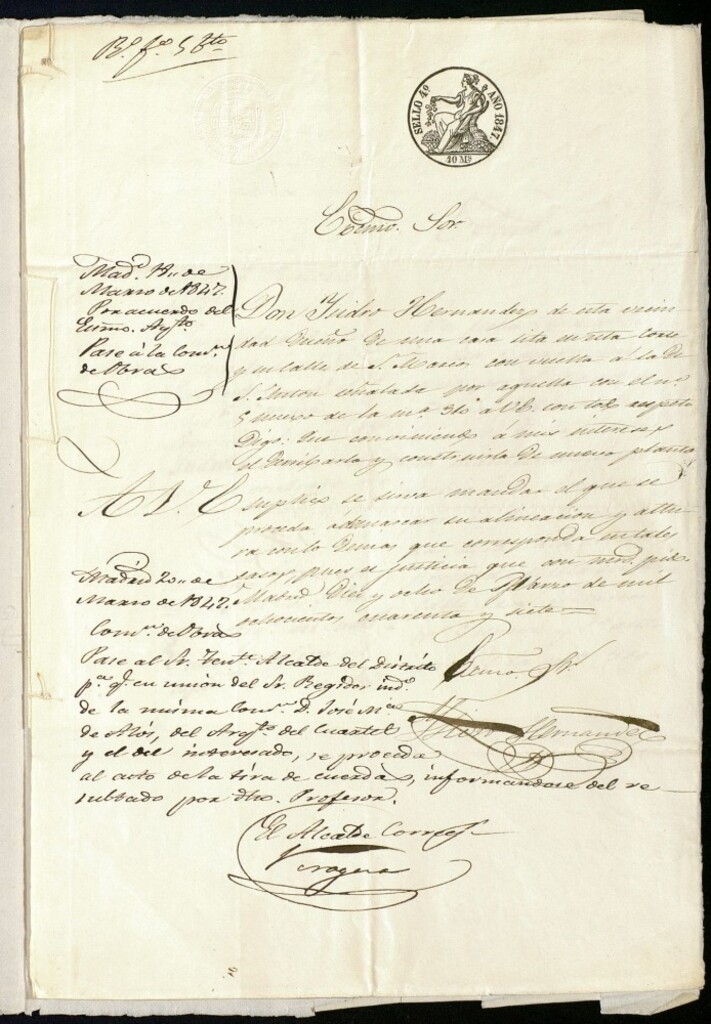 SELLO 4º AÑO 1847
40 Mº
Excmo. Sor.
Madd. 19,, de
Marzo de 1847.
Por acuerdo del
Excmo. Aytto
Pase á la Comn.
de Obras
Don Ysidro Hernandez de esta vecin
dad dueño de una casa sita en esta Corte
y su calle de S. Marcos con vuelta á la de
S. Anton señalada por aquella con el nº
5 nuevo de la mª 310 á V.E. con todo respeto
Digo: Que conviniendo á mis intereses
el derribarla y construirla de nueva planta
A V.E. suplico se sirva mandar el que se
proceda á demarcar su alineacion y altu
ra con lo demas que corresponda en tales
casos, pues es justicia que con mrd. pide.
Madrid Diez y ocho de Marzo de mil
ochocientos cuarenta y siete
Excmo. Sr.
Ysidro Hernandez
Madrid 20,, de
Marzo de 1847.
Comn. de Obras
Pase al Sr. Tente. Alcalde del Distrito
pª qe. en union del Sr. Regidor indº.
de la misma Comn. D. José Mª
de Alós, del Arqto del Cuartel
y el del interesado, se proceda
al acto de la tira de cuerdas, informandose del re
sultado por dho. Profesor.
El Alcalde Corregr.